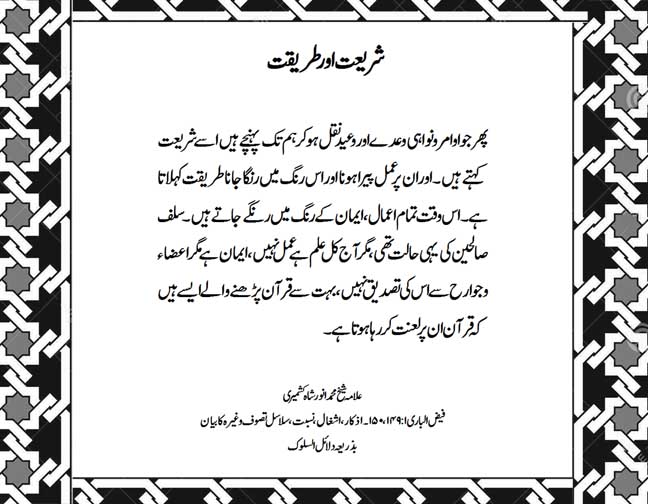 شریعت اور طریقت
پھر جو اوامر و نواہی وعدے اور وعید نقل ہو کر ہم تک پہنچے ہیں اسے شریعت
کہتے ہیں۔ اور ان پر عمل پیرا ہونا اور اس رنگ میں رنگا جانا طریقت کہلاتا
ہے۔ اس وقت تمام اعمال، ایمان کے رنگ میں رنگے جاتے ہیں۔ سلف
صالحین کی یہی حالت تھی، مگر آج کل علم ہے عمل نہیں، ایمان ہے مگر اعضاء
و جوارح سے اس کی تصدیق نہیں، بہت سے قرآن پڑھنے والے ایسے ہیں
کہ قرآن ان پر لعنت کر رہا ہوتا ہے۔
علامہ شیخ محمد انور شاہ کشمیری
فیض الباری ۱:۱۴۹، ۱۵۰۔ اذکار، اشغال، نسبت، سلاسل تصوف وغیرہ کا بیان
بذریعہ دلائل السلوک